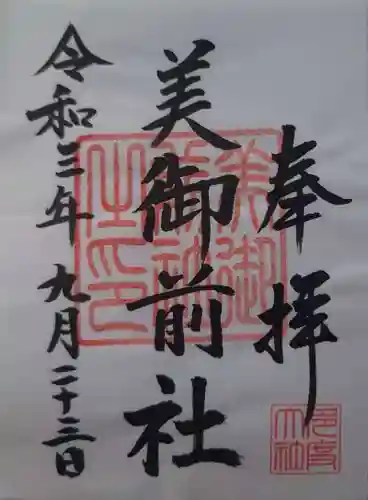 奉拝
美御前社
令和三年九月二十三日
美御
前社
之印